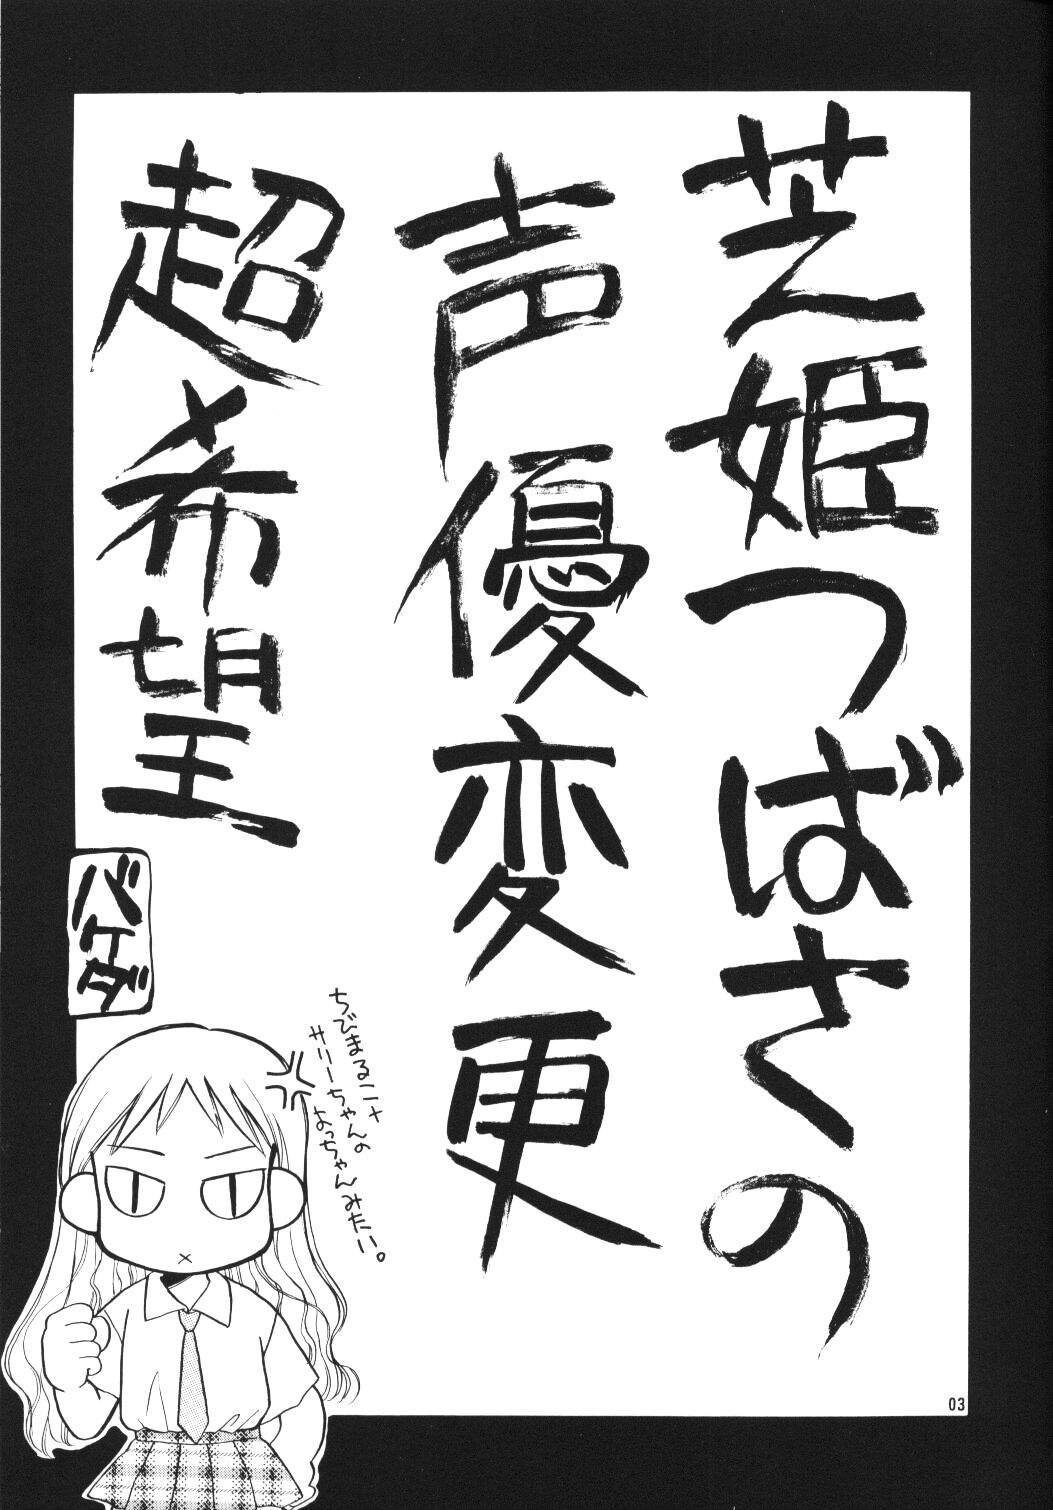 芝姫つばさの
声優変更
超希望
バケダ
ちびまるこや
サリーちゃんの
よっちゃんみたい。
03